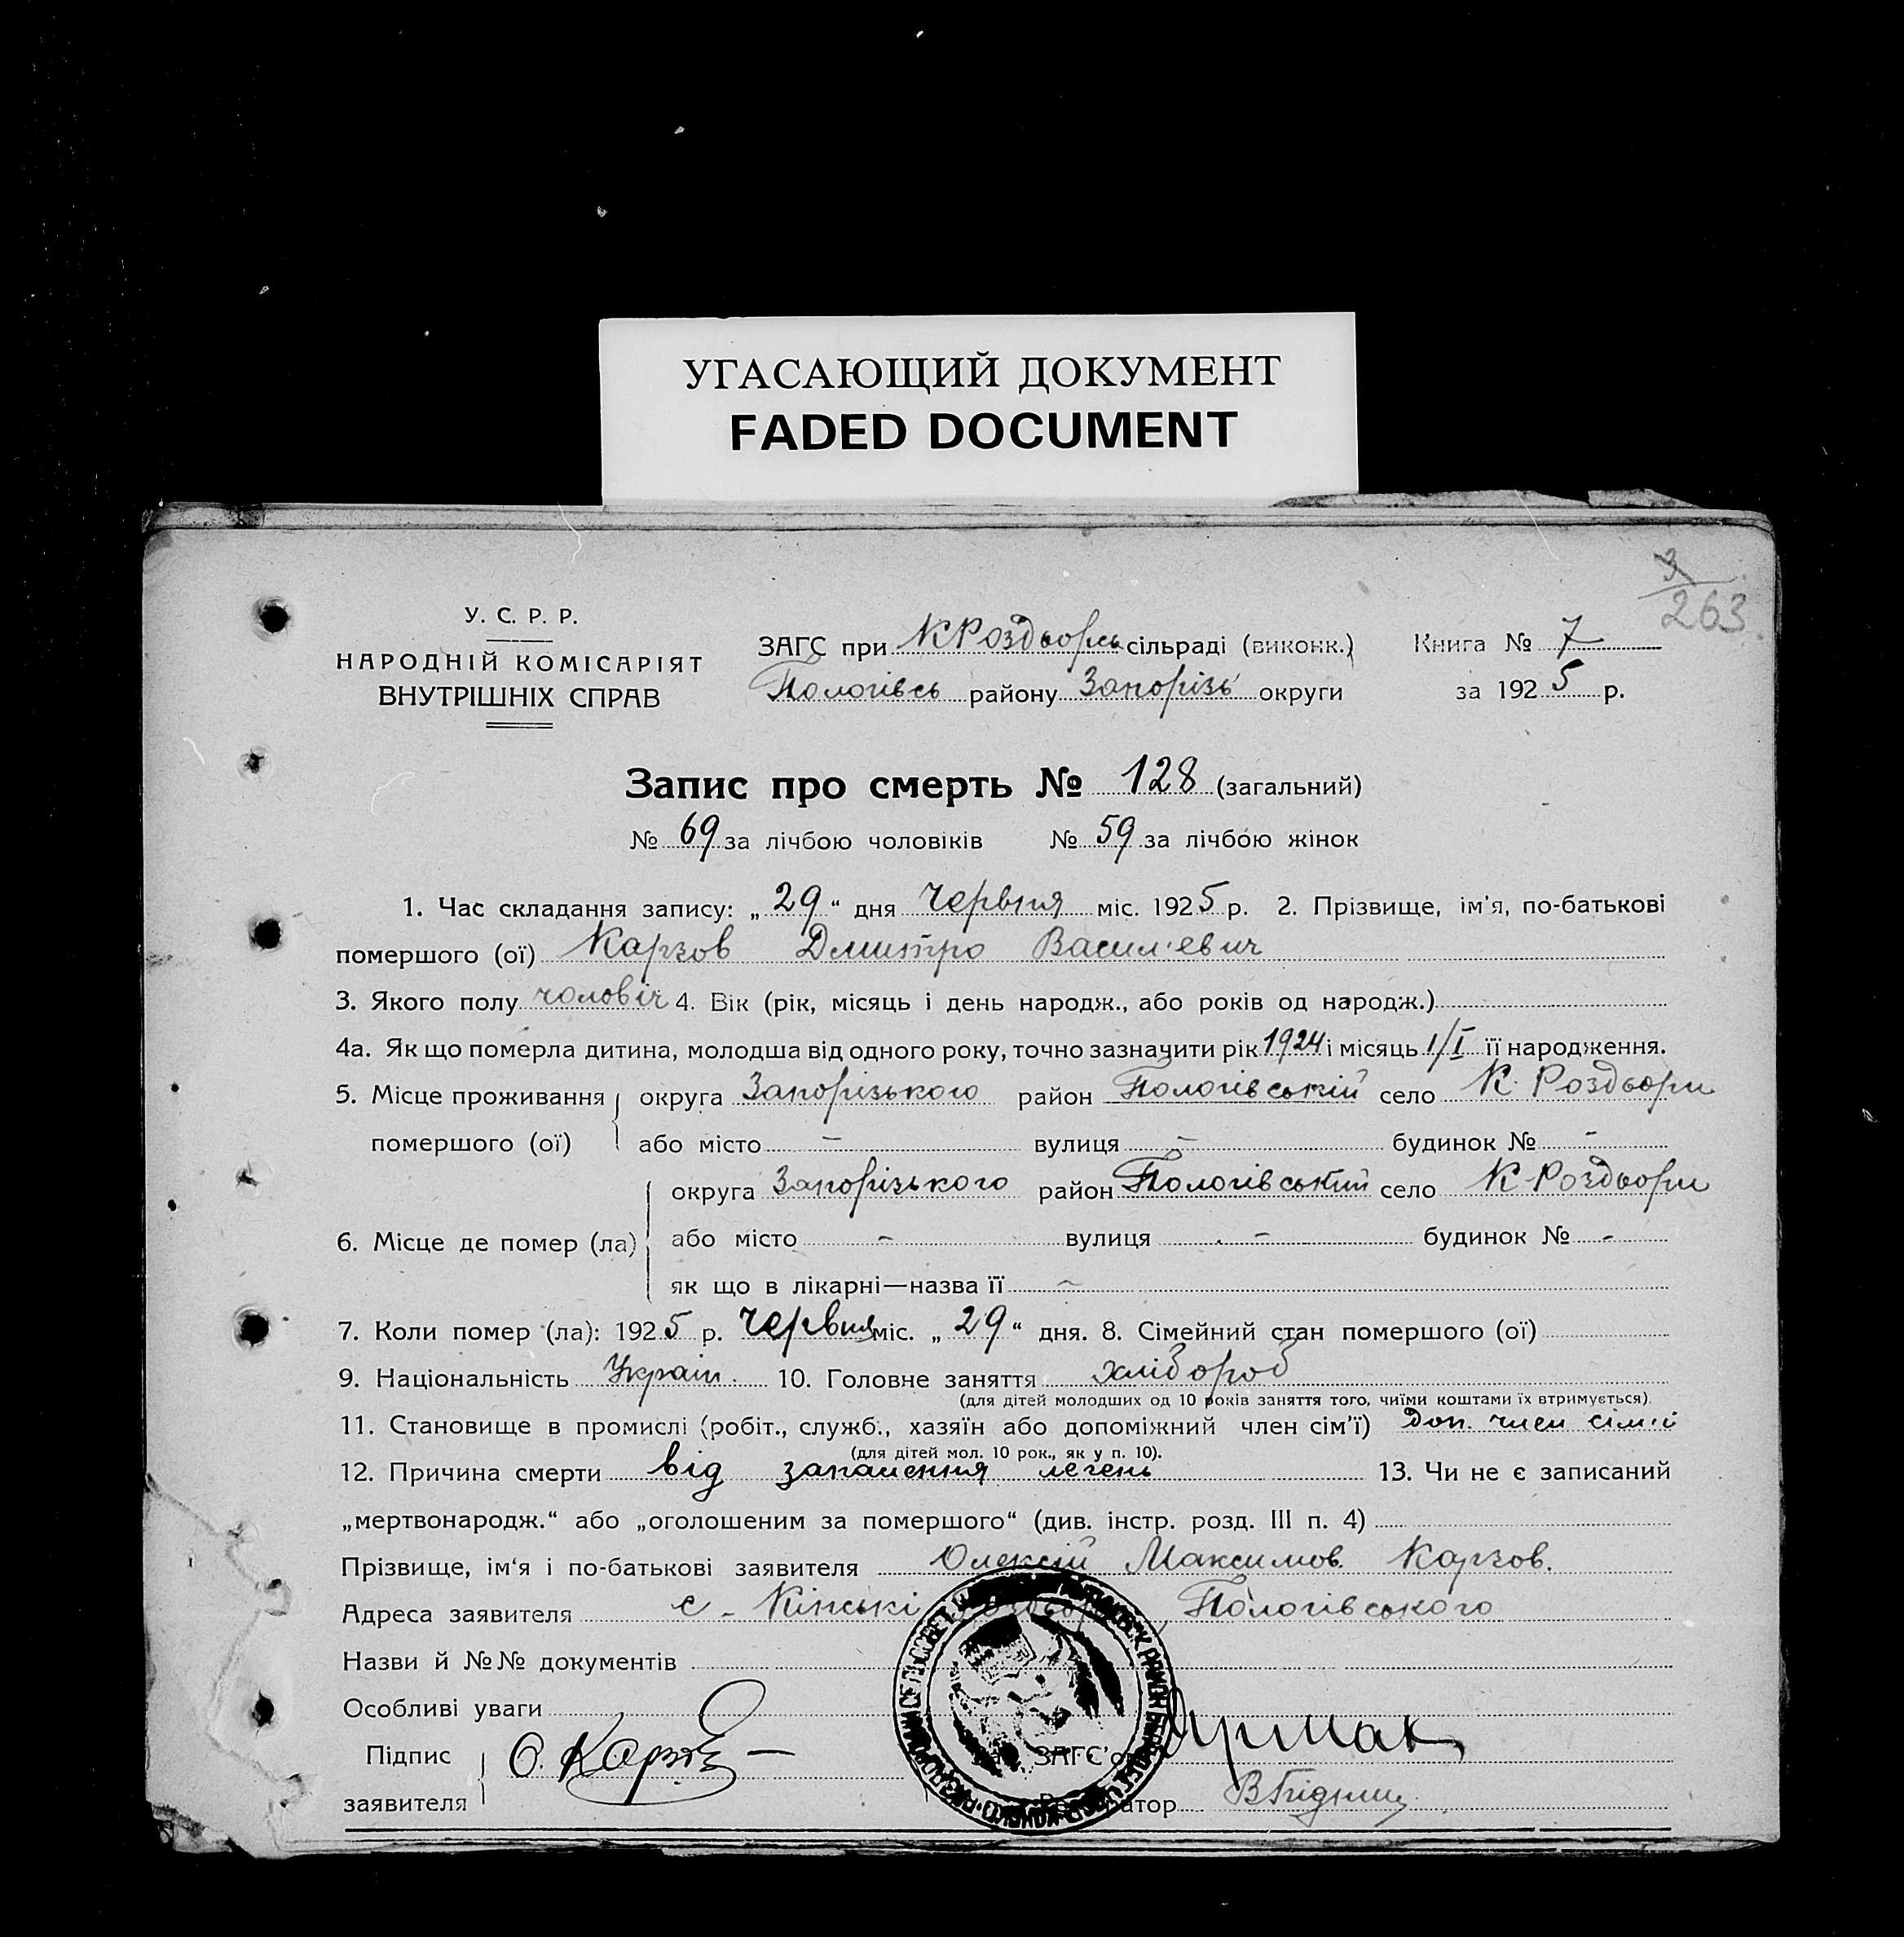 УГАСАЮЩИЙ ДОКУМЕНТ
FADED DOCUMENT
3/263
У. С. Р. Р.
НАРОДНІЙ КОМІСАРІЯТ
ВНУТРІШНІХ СПРАВ
ЗАГС при К Роздорсь сільраді (виконк.) Книга № 7
Пологівсь району Запорізь округи за 1925 р.
Запис про смерть № 128 (загальний)
№ 69 за лічбою чоловіків № 59 за лічбою жінок
1. Час складання запису: „29“ дня Червня міс. 1925 р. 2. Прізвище, ім'я, по-батькові
помершого (ої) Карзов Дмитро Васил'евич
3. Якого полу чоловіч 4. Вік (рік, місяць і день народж., або років од народж.)
4а. Як що померла дитина, молодша від одного року, точно зазначити рік 1924 і місяць 1/I її народження.
5. Місце проживання округа Запорізького район Пологівській село К. Роздори
помершого (ої) або місто - вулиця - будинок № -
округа Запорізького район Пологівський село К-Роздори
6. Місце де помер (ла) або місто - вулиця - будинок № -
як що в лікарні—назва її -
7. Коли помер (ла): 1925 р. Червня міс. „29“ дня. 8. Сімейний стан помершого (ої)
9. Національність Україн. 10. Головне заняття хлібороб
(для дітей молодших од 10 років заняття того, чиїми коштами їх втримується).
11. Становище в промислі (робіт., служб., хазяїн або допоміжний член сім'ї) Доп. член сімії
(для дітей мол. 10 рок., як у п. 10).
12. Причина смерти від запалення легень 13. Чи не є записаний
„мертвонародж.“ або „оголошеним за помершого“ (див. інстр. розд. III п. 4)
Прізвище, ім'я і по-батькові заявителя Олексій Максимов. Карзов.
Адреса заявителя с - Кінські Роздори, Пологівського
Назви й №№ документів
Особливі уваги
Підпис О. Карзов ЗАГС'ом
заявителя Реєстратор